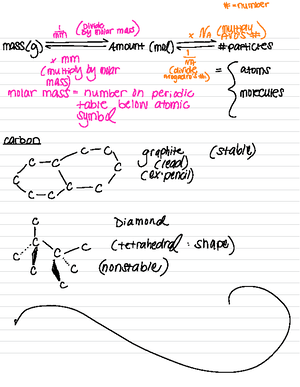 # = number
1/mm (divide by molar mass)
x NA (multiply
mass(g) Amount (mol) # particles
x mm
(multiply by molar mass)
1/NA
(divide
= { atoms
molecules
molar mass = number on periodic
table below atomic
symbol
carbon
C C C C C C C C C C
graphite (stable)
(lead)
(ex: pencil)
Diamond
(tetrahedral : shape)
(nonstable)
C C C C C C C C